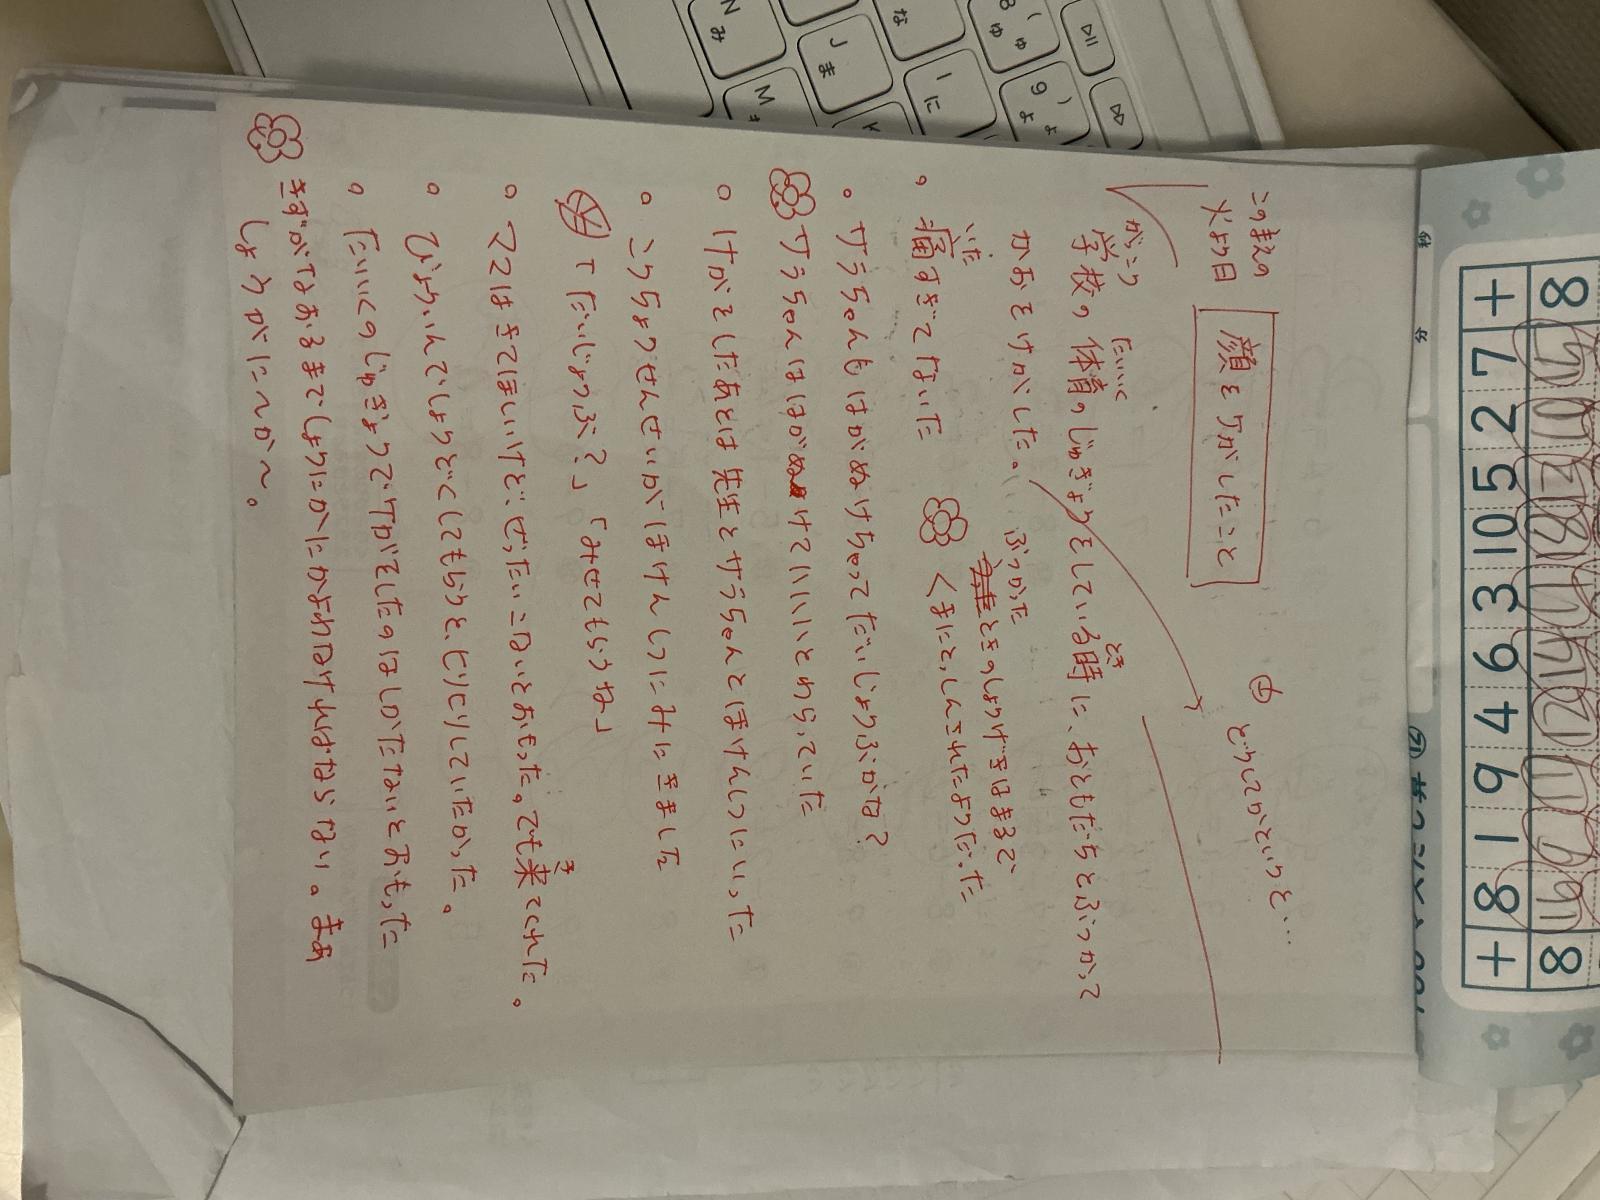 このまえの
火よう日
顔をケガしたこと
㊉ どうしてかというと…
がっこう たいいく とき
学校の体育のじゅぎょうをしている時に、おともだちとぶつかって
かおをけがした。
ぶつかった
ときのしょうげきはまるで、
くまにとっしんされたようだった
いた
。痛すぎてないた
。サラちゃんもはがぬけちゃってだいじょうぶかな?
サラちゃんははがぬけてハハハとわらっていた
。けがをしたあとは先生とサラちゃんとほけんしつにいった
。こうちょうせんせいがほけんしつにみにきました
「だいじょうぶ?」「みせてもらうね」
。ママはきてほしいけど、ぜったいこないとおもった。でも来てくれた。
き
。びょういんでしょうどくしてもらうと、ヒリヒリしていたかった。
。たいいくのじゅぎょうでケガをしたのはしかたないとおもった
きずがなおるまでしょうにかにかよわなければならない。まあ
しょうがに〜か〜。
+ 7 2 5 10 3 6 4 9 1 8 +
8 15 10 13 18 11 14 12 17 9 16 8
分
N み
J ま
M も
K
I に
な
8 ゆ ゅ
9 よ ょ
(
)